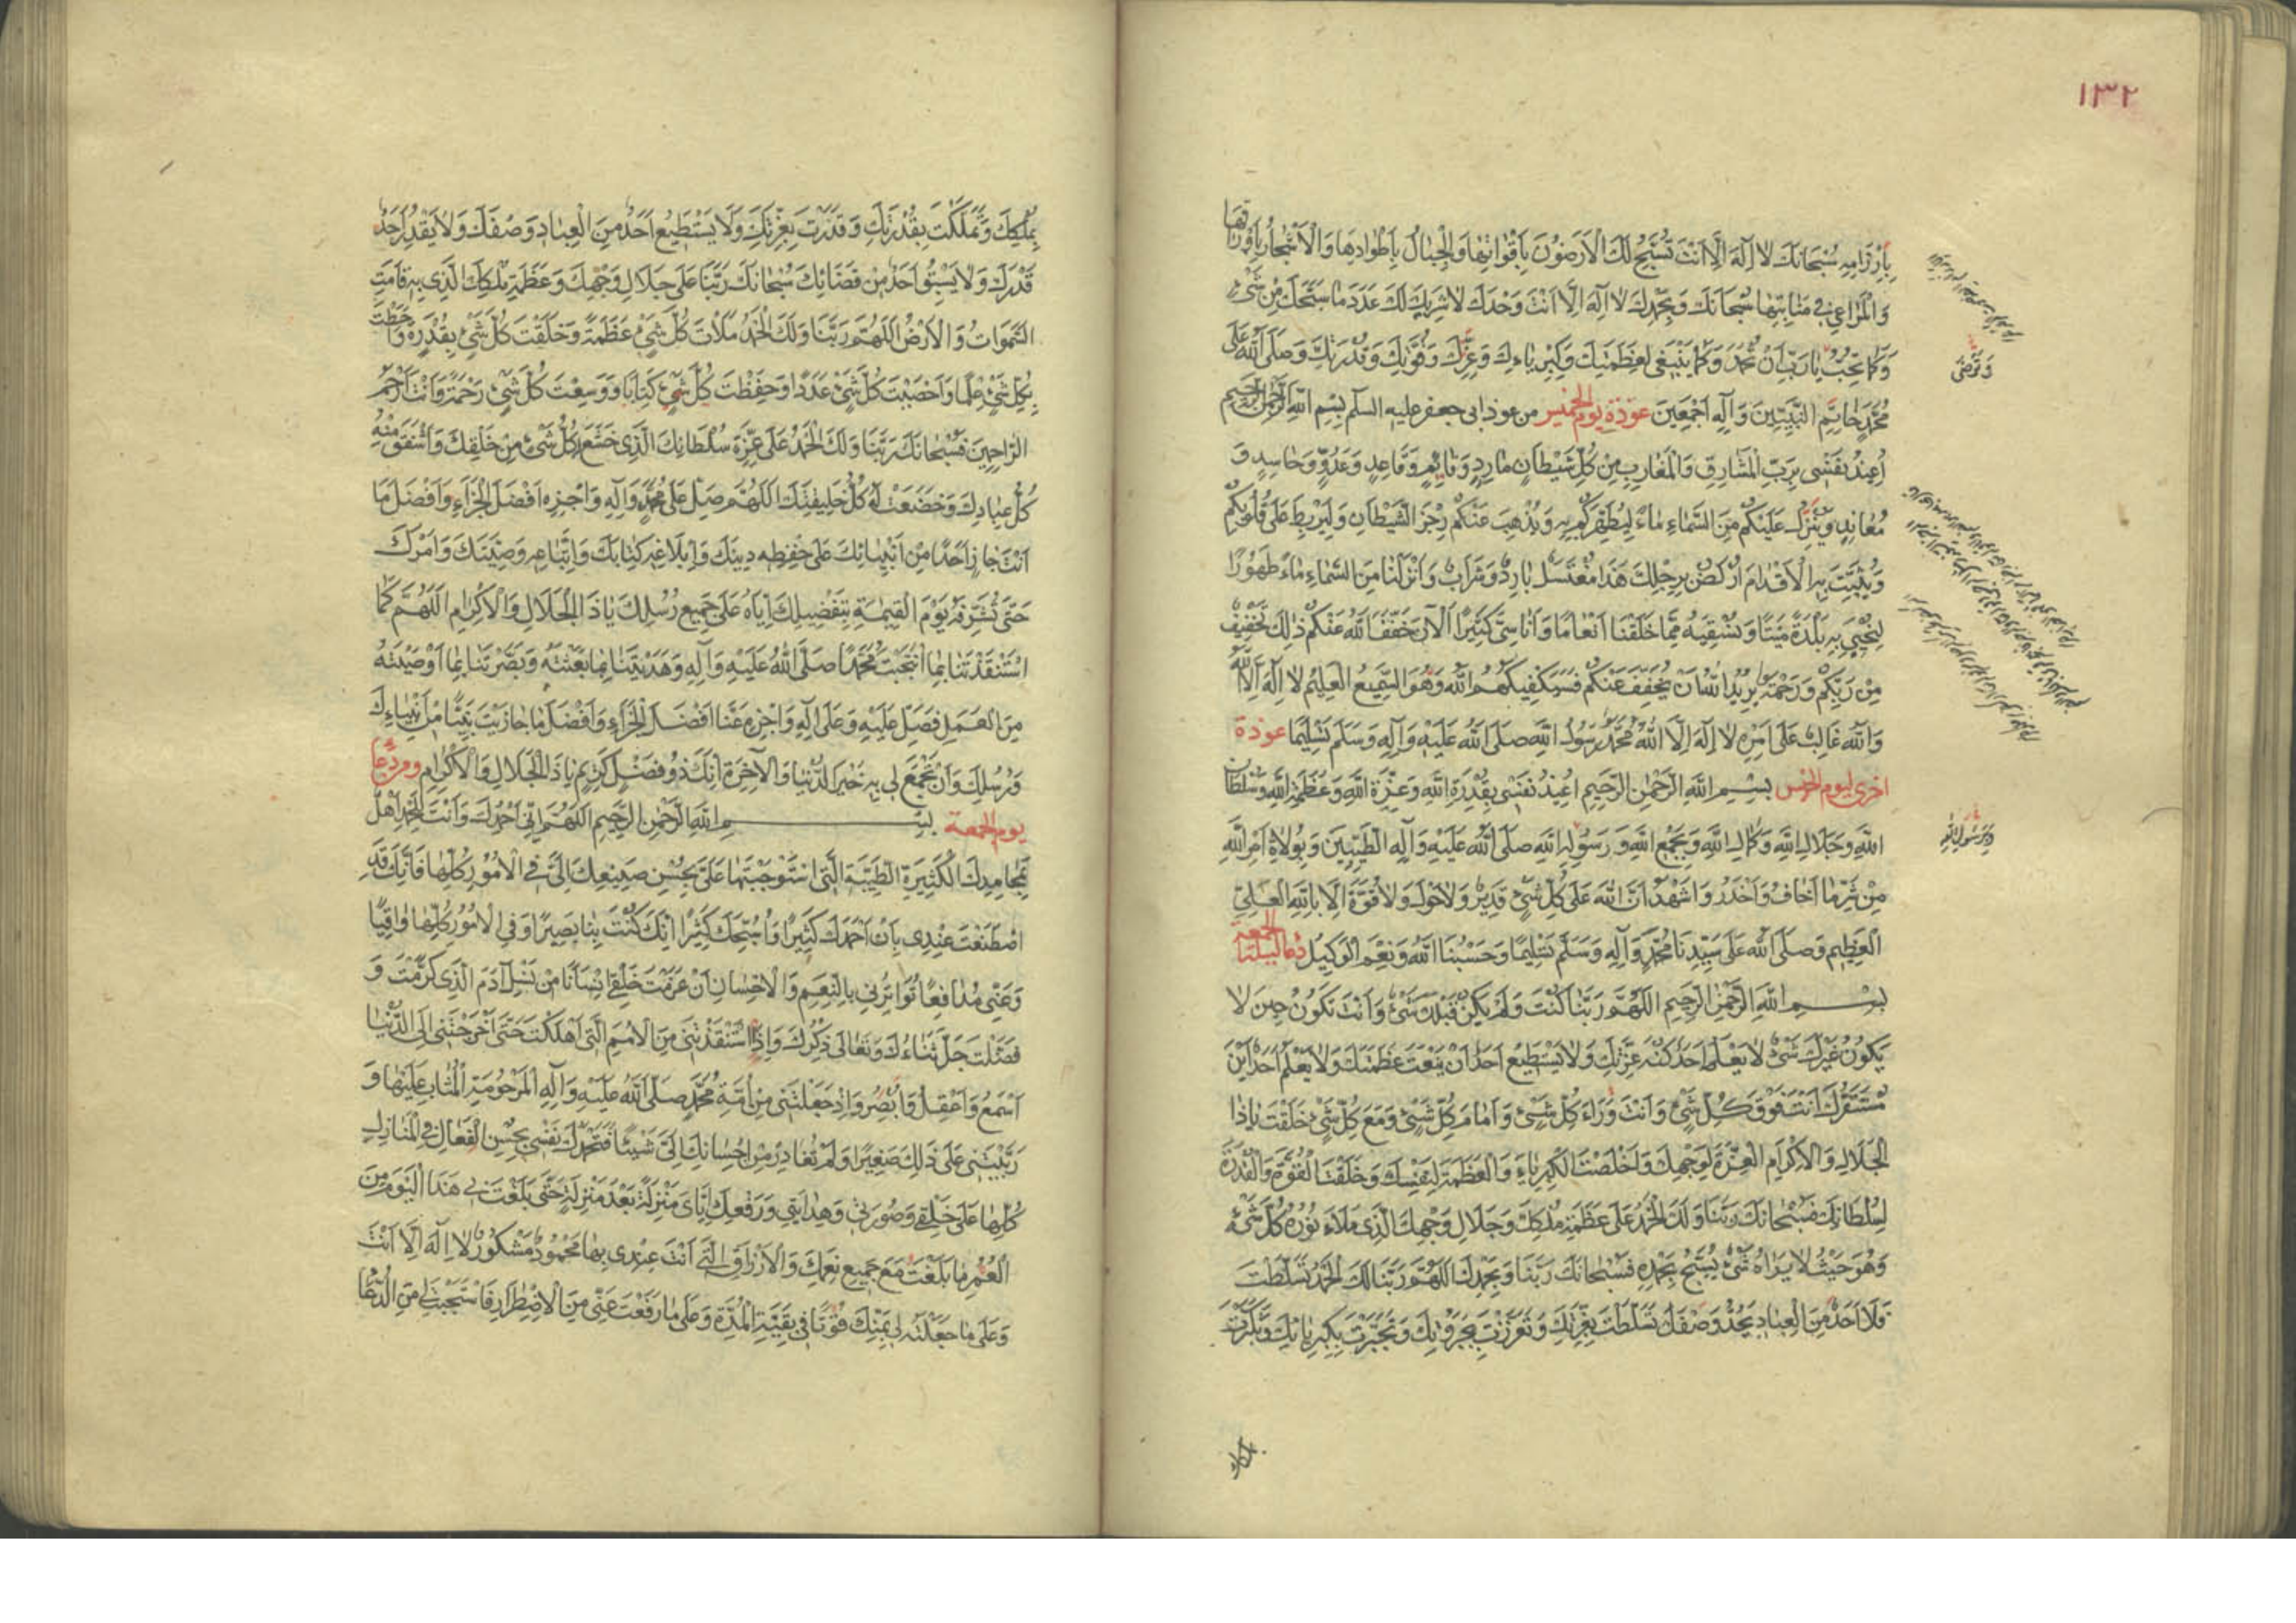 ١٣٢
بِأَرْزَامِهِ سُبْحَانَكَ لَا إِلَهَ إِلَّا أَنْتَ تُسَبِّحُ لَكَ الْأَرَضُونَ بِأَقْوَاتِهَا وَالْجِبَالُ بِأَطْوَادِهَا وَالْأَشْجَارُ بِأَوْرَاقِهَا
وَالْمَرَاعِي فِي مَنَابِتِهَا سُبْحَانَكَ وَبِحَمْدِكَ لَا إِلَهَ إِلَّا أَنْتَ وَحْدَكَ لَا شَرِيكَ لَكَ عَدَدَ مَا سَبَّحَكَ مِنْ شَيْءٍ
وَكَمَا تُحِبُّ يَا رَبِّ أَنْ تُحْمَدَ وَكَمَا يَنْبَغِي لِعَظَمَتِكَ وَكِبْرِيَاءِكَ وَعِزِّكَ وَقُوَّتِكَ وَقُدْرَتِكَ وَصَلَّى اللهُ عَلَى
وَتَرْضَى
مُحَمَّدٍ خَاتَمِ النَّبِيِّينَ وَآلِهِ أَجْمَعِينَ عوذة يوم الخميس من عوذ ابى جعفر عليه السلم بِسْمِ اللهِ الرَّحْمَنِ الرَّحِيمِ
أُعِيذُ نَفْسِي بِرَبِّ الْمَشَارِقِ وَالْمَغَارِبِ مِنْ كُلِّ شَيْطَانٍ مَارِدٍ وَقَائِمٍ وَقَاعِدٍ وَعَدُوٍّ وَحَاسِدٍ وَ
مُعَانِدٍ وَيُنَزِّلُ عَلَيْكُمْ مِنَ السَّمَاءِ مَاءً لِيُطَهِّرَكُمْ بِهِ وَيُذْهِبَ عَنْكُمْ رِجْزَ الشَّيْطَانِ وَلِيَرْبِطَ عَلَى قُلُوبِكُمْ
وَيُثَبِّتَ بِهِ الْأَقْدَامَ ارْكُضْ بِرِجْلِكَ هَذَا مُغْتَسَلٌ بَارِدٌ وَشَرَابٌ وَأَنْزَلْنَا مِنَ السَّمَاءِ مَاءً طَهُورًا
لِنُحْيِيَ بِهِ بَلْدَةً مَيْتًا وَنُسْقِيَهُ مِمَّا خَلَقْنَا أَنْعَامًا وَأَنَاسِيَّ كَثِيرًا الْآنَ خَفَّفَ اللهُ عَنْكُمْ ذَلِكَ تَخْفِيفٌ
مِنْ رَبِّكُمْ وَرَحْمَةٌ يُرِيدُ اللهُ أَنْ يُخَفِّفَ عَنْكُمْ فَسَيَكْفِيكَهُمُ اللهُ وَهُوَ السَّمِيعُ الْعَلِيمُ لَا إِلَهَ إِلَّا اللهُ
وَاللهُ غَالِبٌ عَلَى أَمْرِهِ لَا إِلَهَ إِلَّا اللهُ مُحَمَّدٌ رَسُولُ اللهِ صَلَّى اللهُ عَلَيْهِ وَآلِهِ وَسَلَّمَ تَسْلِيمًا عوذة
اخرى ليوم الخميس بِسْمِ اللهِ الرَّحْمَنِ الرَّحِيمِ أُعِيذُ نَفْسِي بِقُدْرَةِ اللهِ وَعِزَّةِ اللهِ وَعَظَمَةِ اللهِ وَسُلْطَانِ
اللهِ وَجَلَالِ اللهِ وَكَمَالِ اللهِ وَبِجَمْعِ اللهِ وَرَسُولِ اللهِ صَلَّى اللهُ عَلَيْهِ وَآلِهِ الطَّيِّبِينَ وَبِوُلَاةِ أَمْرِ اللهِ
مِنْ شَرِّ مَا أَخَافُ وَأَحْذَرُ وَأَشْهَدُ أَنَّ اللهَ عَلَى كُلِّ شَيْءٍ قَدِيرٌ وَلَا حَوْلَ وَلَا قُوَّةَ إِلَّا بِاللهِ الْعَلِيِّ
الْعَظِيمِ وَصَلَّى اللهُ عَلَى سَيِّدِنَا مُحَمَّدٍ وَآلِهِ وَسَلَّمَ تَسْلِيمًا وَحَسْبُنَا اللهُ وَنِعْمَ الْوَكِيلُ دعا ليلة الجمعة
بِسْمِ اللهِ الرَّحْمَنِ الرَّحِيمِ اللَّهُمَّ رَبَّنَا كُنْتَ وَلَمْ يَكُنْ قَبْلَكَ شَيْءٌ وَأَنْتَ تَكُونُ حِينَ لَا
يَكُونُ غَيْرُكَ شَيْءٌ لَا يَعْلَمُ أَحَدٌ كُنْهَ عِزَّتِكَ وَلَا يَسْتَطِيعُ أَحَدٌ أَنْ يَنْعَتَ عَظَمَتَكَ وَلَا يَعْلَمُ أَحَدٌ أَيْنَ
مُسْتَقَرُّكَ أَنْتَ فَوْقَ كُلِّ شَيْءٍ وَأَنْتَ وَرَاءَ كُلِّ شَيْءٍ وَأَمَامَ كُلِّ شَيْءٍ وَمَعَ كُلِّ شَيْءٍ خَلَقْتَ يَا ذَا
الْجَلَالِ وَالْإِكْرَامِ الْعِزَّةَ لِوَجْهِكَ وَأَخْلَصْتَ الْكِبْرِيَاءَ وَالْعَظَمَةَ لِنَفْسِكَ وَخَلَقْتَ الْقُوَّةَ وَالْقُدْرَةَ
لِسُلْطَانِكَ فَسُبْحَانَكَ رَبَّنَا وَلَكَ الْحَمْدُ عَلَى عَظَمَةِ مُلْكِكَ وَجَلَالِ وَجْهِكَ الَّذِي مَلَاءَ نُورُهُ كُلَّ شَيْءٍ
وَهُوَ حَيْثُ لَا يَرَاهُ شَيْءٌ يُسَبِّحُ بِحَمْدِهِ فَسُبْحَانَكَ رَبَّنَا وَبِحَمْدِكَ اللَّهُمَّ رَبَّنَا لَكَ الْحَمْدُ تَسَلَّطْتَ
فَلَا أَحَدٌ مِنَ الْعِبَادِ يَحُدُّ وَصْفَكَ تَسَلَّطْتَ بِعِزَّتِكَ وَتَعَزَّزْتَ بِجَبَرُوتِكَ وَتَجَبَّرْتَ بِكِبْرِيَائِكَ وَتَكَبَّرْتَ
بِمُلْكِكَ وَتَمَلَّكْتَ بِقُدْرَتِكَ وَقَدَرْتَ بِعِزَّتِكَ وَلَا يَسْتَطِيعُ أَحَدٌ مِنَ الْعِبَادِ وَصْفَكَ وَلَا يَقْدِرُ أَحَدٌ
قَدْرَكَ وَلَا يَسْبِقُ أَحَدٌ مِنْ قَضَائِكَ سُبْحَانَكَ رَبَّنَا عَلَى جَلَالِ وَجْهِكَ وَعَظَمَةِ مُلْكِكَ الَّذِي بِهِ قَامَتِ
السَّمَوَاتُ وَالْأَرْضُ اللَّهُمَّ رَبَّنَا وَلَكَ الْحَمْدُ مَلَأْتَ كُلَّ شَيْءٍ عَظَمَةً وَخَلَقْتَ كُلَّ شَيْءٍ بِقُدْرَةٍ وَأَحَطْتَ
بِكُلِّ شَيْءٍ عِلْمًا وَأَحْصَيْتَ كُلَّ شَيْءٍ عَدَدًا وَحَفِظْتَ كُلَّ شَيْءٍ كِتَابًا وَوَسِعْتَ كُلَّ شَيْءٍ رَحْمَةً وَأَنْتَ أَرْحَمُ
الرَّاحِمِينَ فَسُبْحَانَكَ رَبَّنَا وَلَكَ الْحَمْدُ عَلَى عِزَّةِ سُلْطَانِكَ الَّذِي خَشَعَ لَهُ كُلُّ شَيْءٍ مِنْ خَلْقِكَ وَأَشْفَقَ مِنْهُ
كُلُّ عِبَادِكَ وَخَضَعَتْ لَهُ كُلُّ خَلِيقَتِكَ اللَّهُمَّ صَلِّ عَلَى مُحَمَّدٍ وَآلِهِ وَاجْزِهِ أَفْضَلَ الْجَزَاءِ وَأَفْضَلَ مَا
أَنْتَ جَازٍ أَحَدًا مِنْ أَنْبِيَائِكَ عَلَى حِفْظِهِ دِينَكَ وَإِبْلَاغِهِ كِتَابَكَ وَاتِّبَاعِهِ وَصِيَّتَكَ وَأَمْرَكَ
حَتَّى تُشَرِّفَهُ يَوْمَ الْقِيَمَةِ بِتَفْضِيلِكَ إِيَّاهُ عَلَى جَمِيعِ رُسُلِكَ يَا ذَا الْجَلَالِ وَالْإِكْرَامِ اللَّهُمَّ كَمَا
اسْتَنْقَذْتَنَا بِمَا انْتَجَبْتَ مُحَمَّدًا صَلَّى اللهُ عَلَيْهِ وَآلِهِ وَهَدَيْتَنَا بِمَا بَعَثْتَهُ وَبَصَّرْتَنَا بِمَا أَوْصَيْتَهُ
مِنَ الْعَمَلِ فَصَلِّ عَلَيْهِ وَعَلَى آلِهِ وَاجْزِهِ عَنَّا أَفْضَلَ الْجَزَاءِ وَأَفْضَلَ مَا جَازَيْتَ نَبِيًّا مِنْ أَنْبِيَاءِكَ
وَرُسُلِكَ وَأَنْ تَجْمَعَ لِي بِهِ خَيْرَ الدُّنْيَا وَالْآخِرَةِ إِنَّكَ ذُو فَضْلٍ كَرِيمٍ يَا ذَا الْجَلَالِ وَالْإِكْرَامِ ومن دعا
يوم الجمعة بِسْمِ اللهِ الرَّحْمَنِ الرَّحِيمِ اللَّهُمَّ إِنِّي أَحْمَدُكَ وَأَنْتَ لِلْحَمْدِ أَهْلٌ
بِمَحَامِدِكَ الْكَثِيرَةِ الطَّيِّبَةِ الَّتِي اسْتَوْجَبْتَهَا عَلَيَّ بِحُسْنِ صَنِيعِكَ إِلَيَّ فِي الْأُمُورِ كُلِّهَا فَإِنَّكَ قَدِ
اصْطَنَعْتَ عِنْدِي بِأَنْ أَحْمَدَكَ كَثِيرًا وَأُسَبِّحَكَ كَثِيرًا إِنَّكَ كُنْتَ بِنَا بَصِيرًا وَفِي الْأُمُورِ كُلِّهَا وَاقِيًا
وَعَنِّي مُدَافِعًا تُوَاتِرُنِي بِالنِّعَمِ وَالْإِحْسَانِ أَنْ عَزَمْتَ خَلْقِي إِنْسَانًا مِنْ نَسْلِ آدَمَ الَّذِي كَرَّمْتَ وَ
فَضَّلْتَ جَلَّ ثَنَاءُكَ وَتَعَالَى ذِكْرُكَ وَإِذِ اسْتَنْقَذْتَنِي مِنَ الْأُمَمِ الَّتِي أَهْلَكْتَ حَتَّى أَخْرَجْتَنِي إِلَى الدُّنْيَا
أَسْمَعُ وَأَعْقِلُ وَأُبْصِرُ وَإِذْ جَعَلْتَنِي مِنْ أُمَّةِ مُحَمَّدٍ صَلَّى اللهُ عَلَيْهِ وَآلِهِ الْمَرْحُومَةِ الْمُثَابِ عَلَيْهَا وَ
رَبَّيْتَنِي عَلَى ذَلِكَ صَغِيرًا وَلَمْ تُغَادِرْ مِنْ إِحْسَانِكَ إِلَيَّ شَيْئًا فَتَحْمَدُكَ نَفْسِي بِحُسْنِ الْفَعَالِ فِي الْمَنَازِلِ
كُلِّهَا عَلَى خَلْقِي وَصُورَتِي وَهِدَايَتِي وَرَفْعِكَ إِيَّايَ مَنْزِلَةً بَعْدَ مَنْزِلَةٍ حَتَّى بَلَغْتَ بِي هَذَا الْيَوْمَ مِنَ
الْعُمُرِ مَا بَلَغْتُ مَعَ جَمِيعِ نِعَمِكَ وَالْأَرْزَاقِ الَّتِي أَنْتَ عِنْدِي بِهَا مَحْمُودٌ مَشْكُورٌ لَا إِلَهَ إِلَّا أَنْتَ
وَعَلَى مَا جَعَلْتَهُ لِي بِمَنِّكَ قُوتًا فِي بَقِيَّةِ الْمُدَّةِ وَعَلَى مَا رَفَعْتَ عَنِّي مِنَ الْاضْطِرَارِ فَاسْتَجَبْتَ لِي مِنَ الدُّعَا